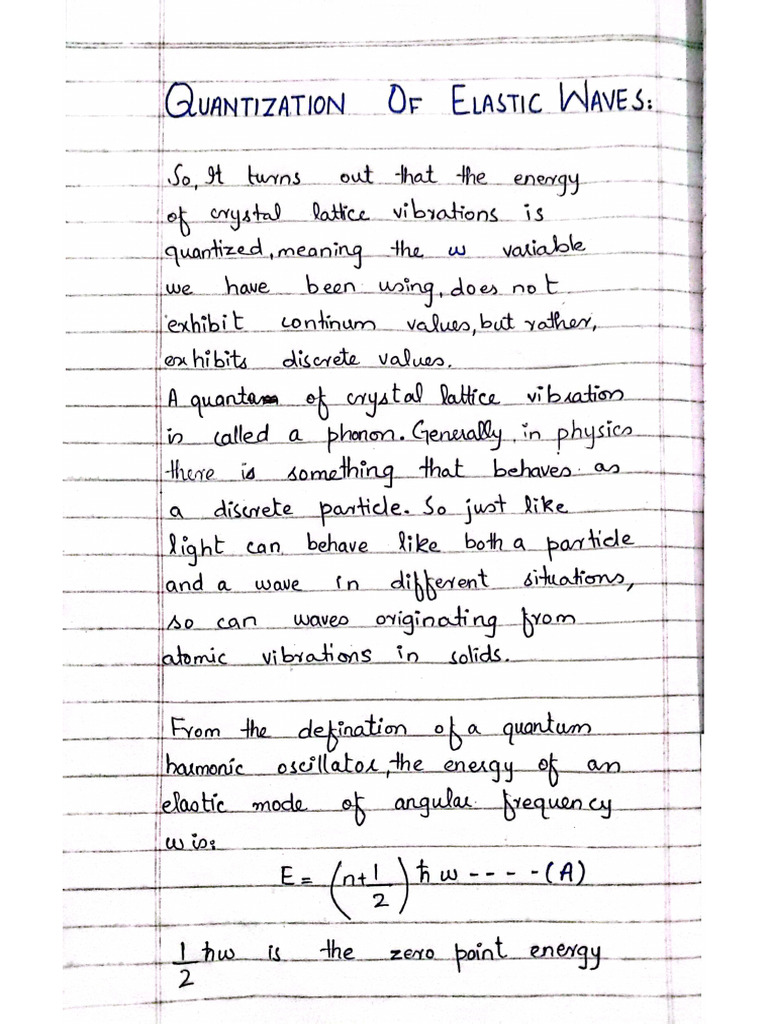 QUANTIZATION OF ELASTIC WAVES:
So, It turns out that the energy
of crystal lattice vibrations is
quantized, meaning the ω variable
we have been using, does not
exhibit continum values, but rather,
exhibits discrete values.
A quantam of crystal lattice vibration
is called a phonon. Generally, in physics
there is something that behaves as
a discrete particle. So just like
light can behave like both a particle
and a wave in different situations,
so can waves originating from
atomic vibrations in solids.
From the defination of a quantum
harmonic oscillator, the energy of an
elastic mode of angular frequency
ω is:
E = (n+1/2) ħω ---- (A)
1/2 ħω is the zero point energy